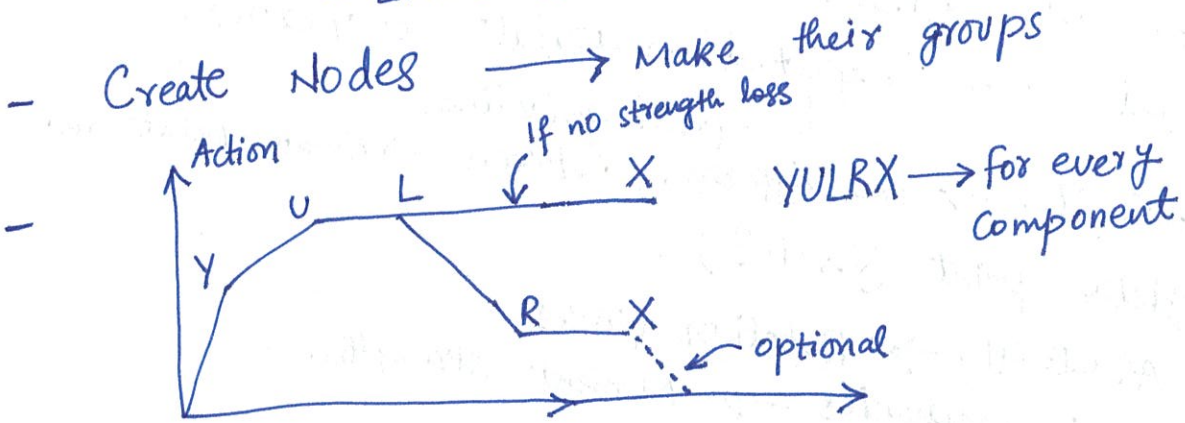 - Create Nodes → Make their groups
If no strength loss
Action
-
U
L
X
YULRX → for every
component
Y
R
X
optional